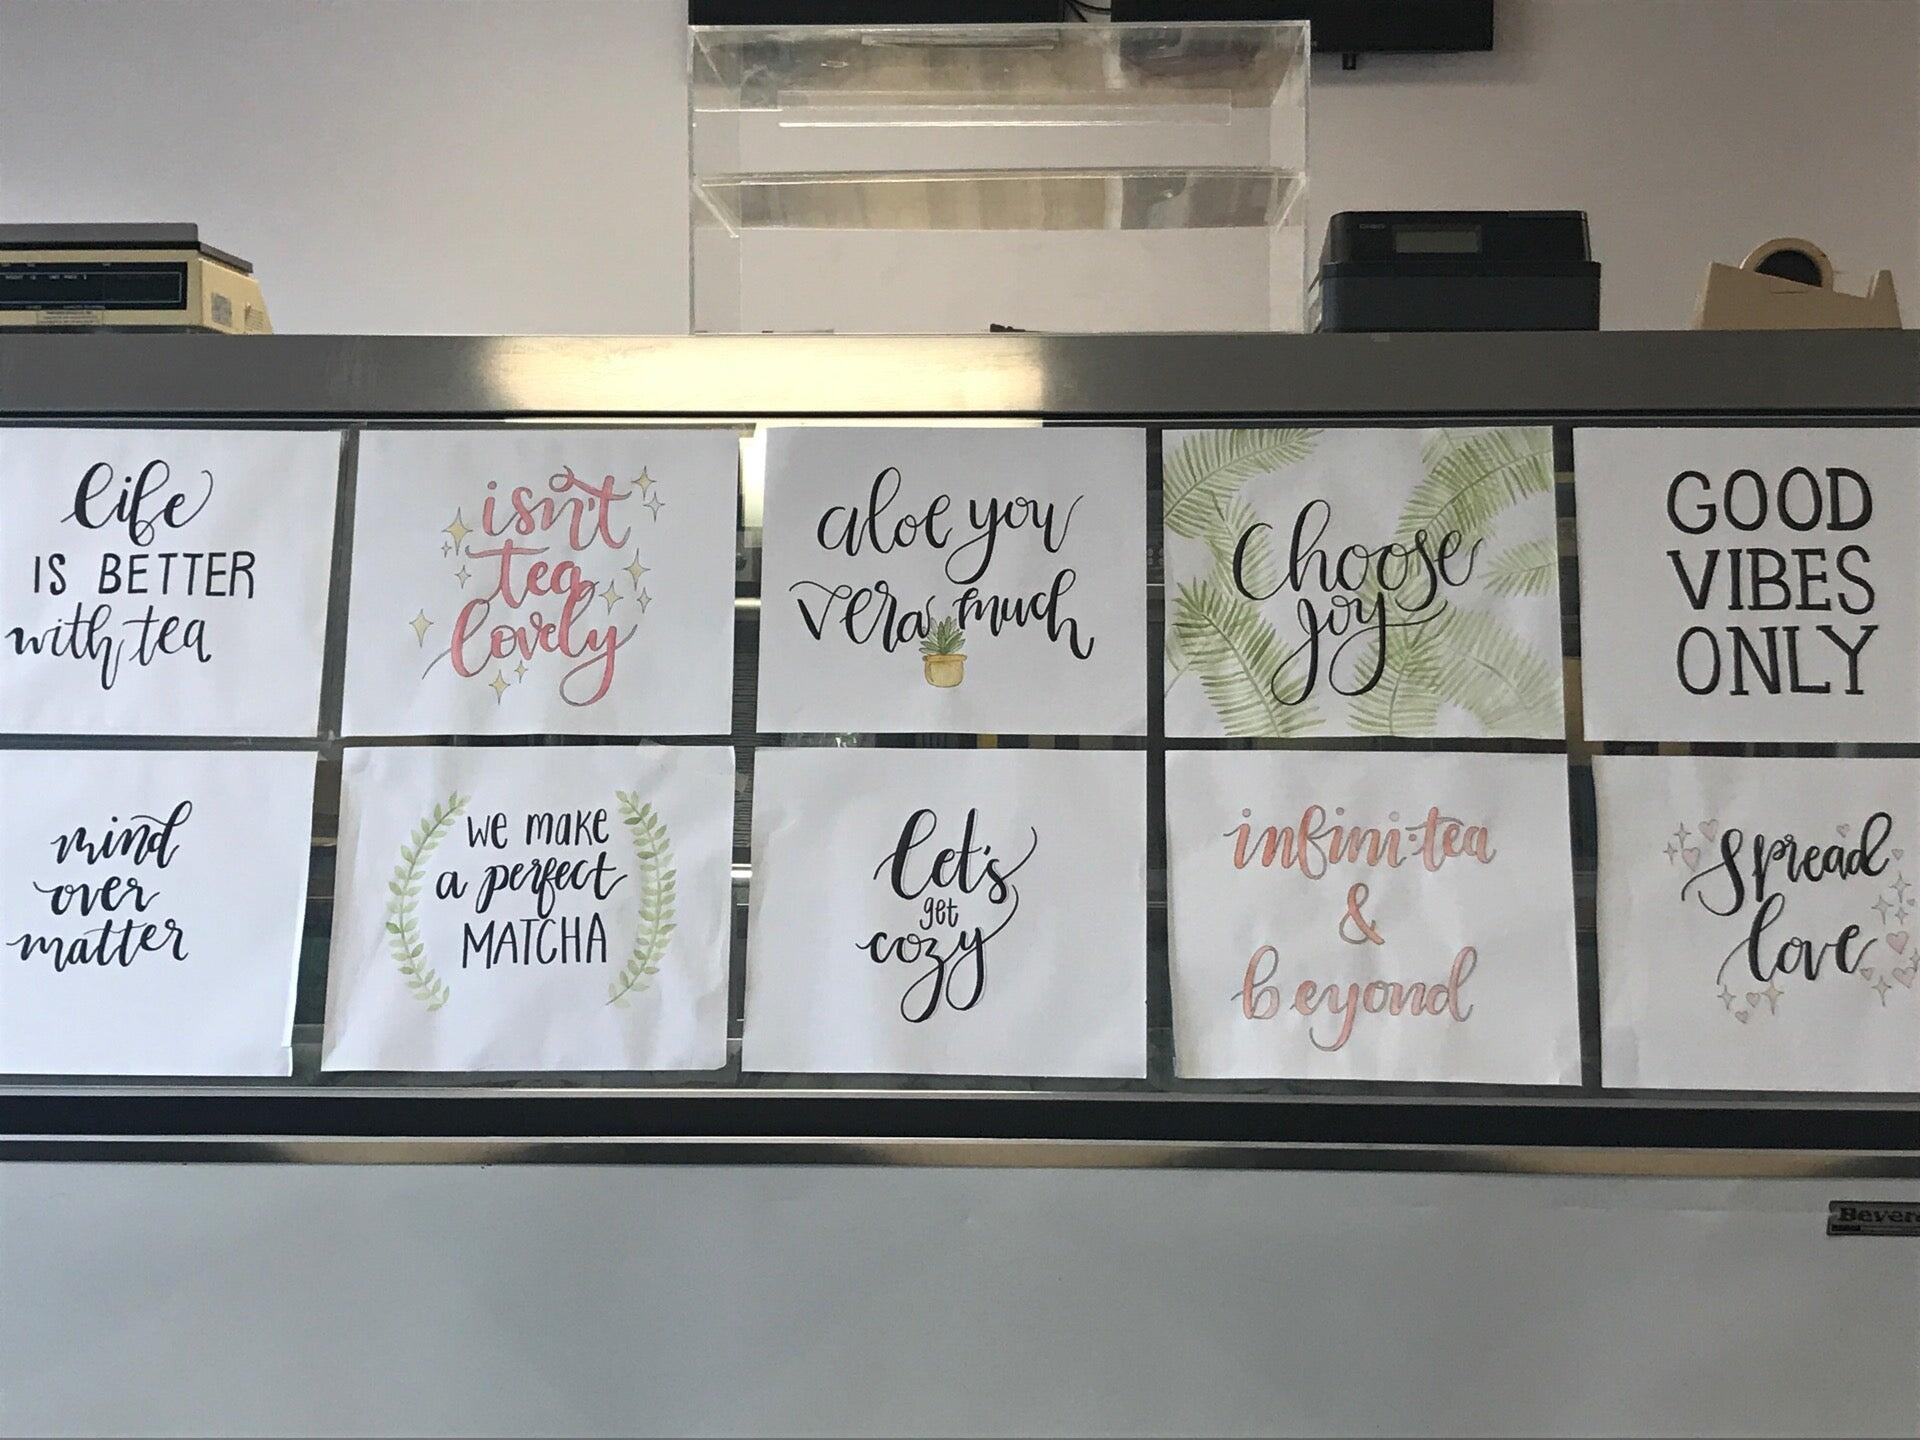 life
IS BETTER
with tea
isn't
tea
lovely
aloe you
vera much
Choose
joy
GOOD
VIBES
ONLY
mind
over
matter
we make
a perfect
MATCHA
let's
get
cozy
infini-tea
&
beyond
Spread
love
Bever